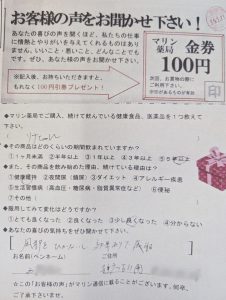 お客様の声をお聞かせ下さい!
あなたの喜びの声を聞くほど、私たちの仕事
に情熱とやりがいを与えてくれるものはあり
ません。いいこと・悪いこと、どんなことでも
です。ぜひ、あなた様の声をお聞かせ下さい。
※記入後、お持ちいただきますと、
もれなく100円引券プレゼント!
マリン薬局 金券
100円
次回、お買物の際に
ご利用下さい。
印
◆マリン薬局でご購入、続けて飲んでいる健康食品、医薬品を1つ教えて下さい。
◆その商品はどのくらいの期間飲まれていますか?
①1ヶ月未満 ②半年以上 ③1年以上 ④3年以上 ⑤5年以上
◆また、その商品を飲み始めた理由、続けている理由は?
①健康維持 ②夜間尿(頻尿) ③ダイエット ④アレルギー疾患
⑤生活習慣病(高血圧・糖尿病・脂質異常症など) ⑥便秘
⑦その他(
◆服用してみて変化はどうですか?
①とても良くなった ②良くなった ③少し良くなった ④分からない
◆あなたの喜びの気持ちをぜひ聞かせて下さい。
お名前(ペンネーム)
ご住所
☆この「お客様の声」がマリン通信に載ることがございます。何卒、
ご了承下さいませ。